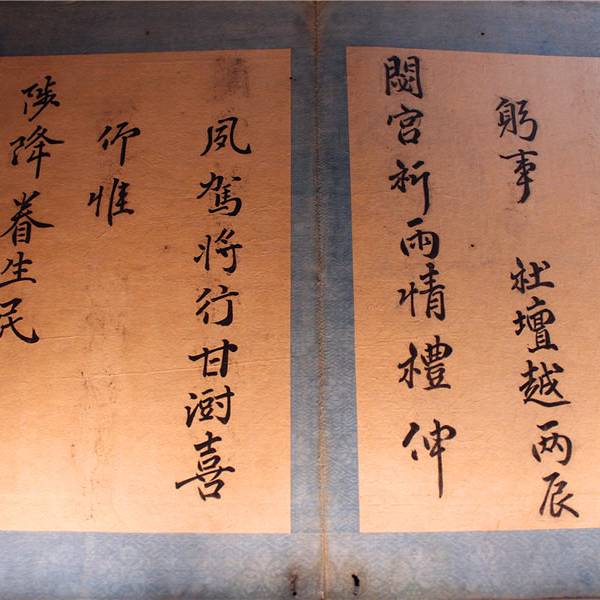 躬事 社壇越兩辰
閟宮祈雨情禮伸
夙駕將行甘澍喜
仰惟
陟降眷生民